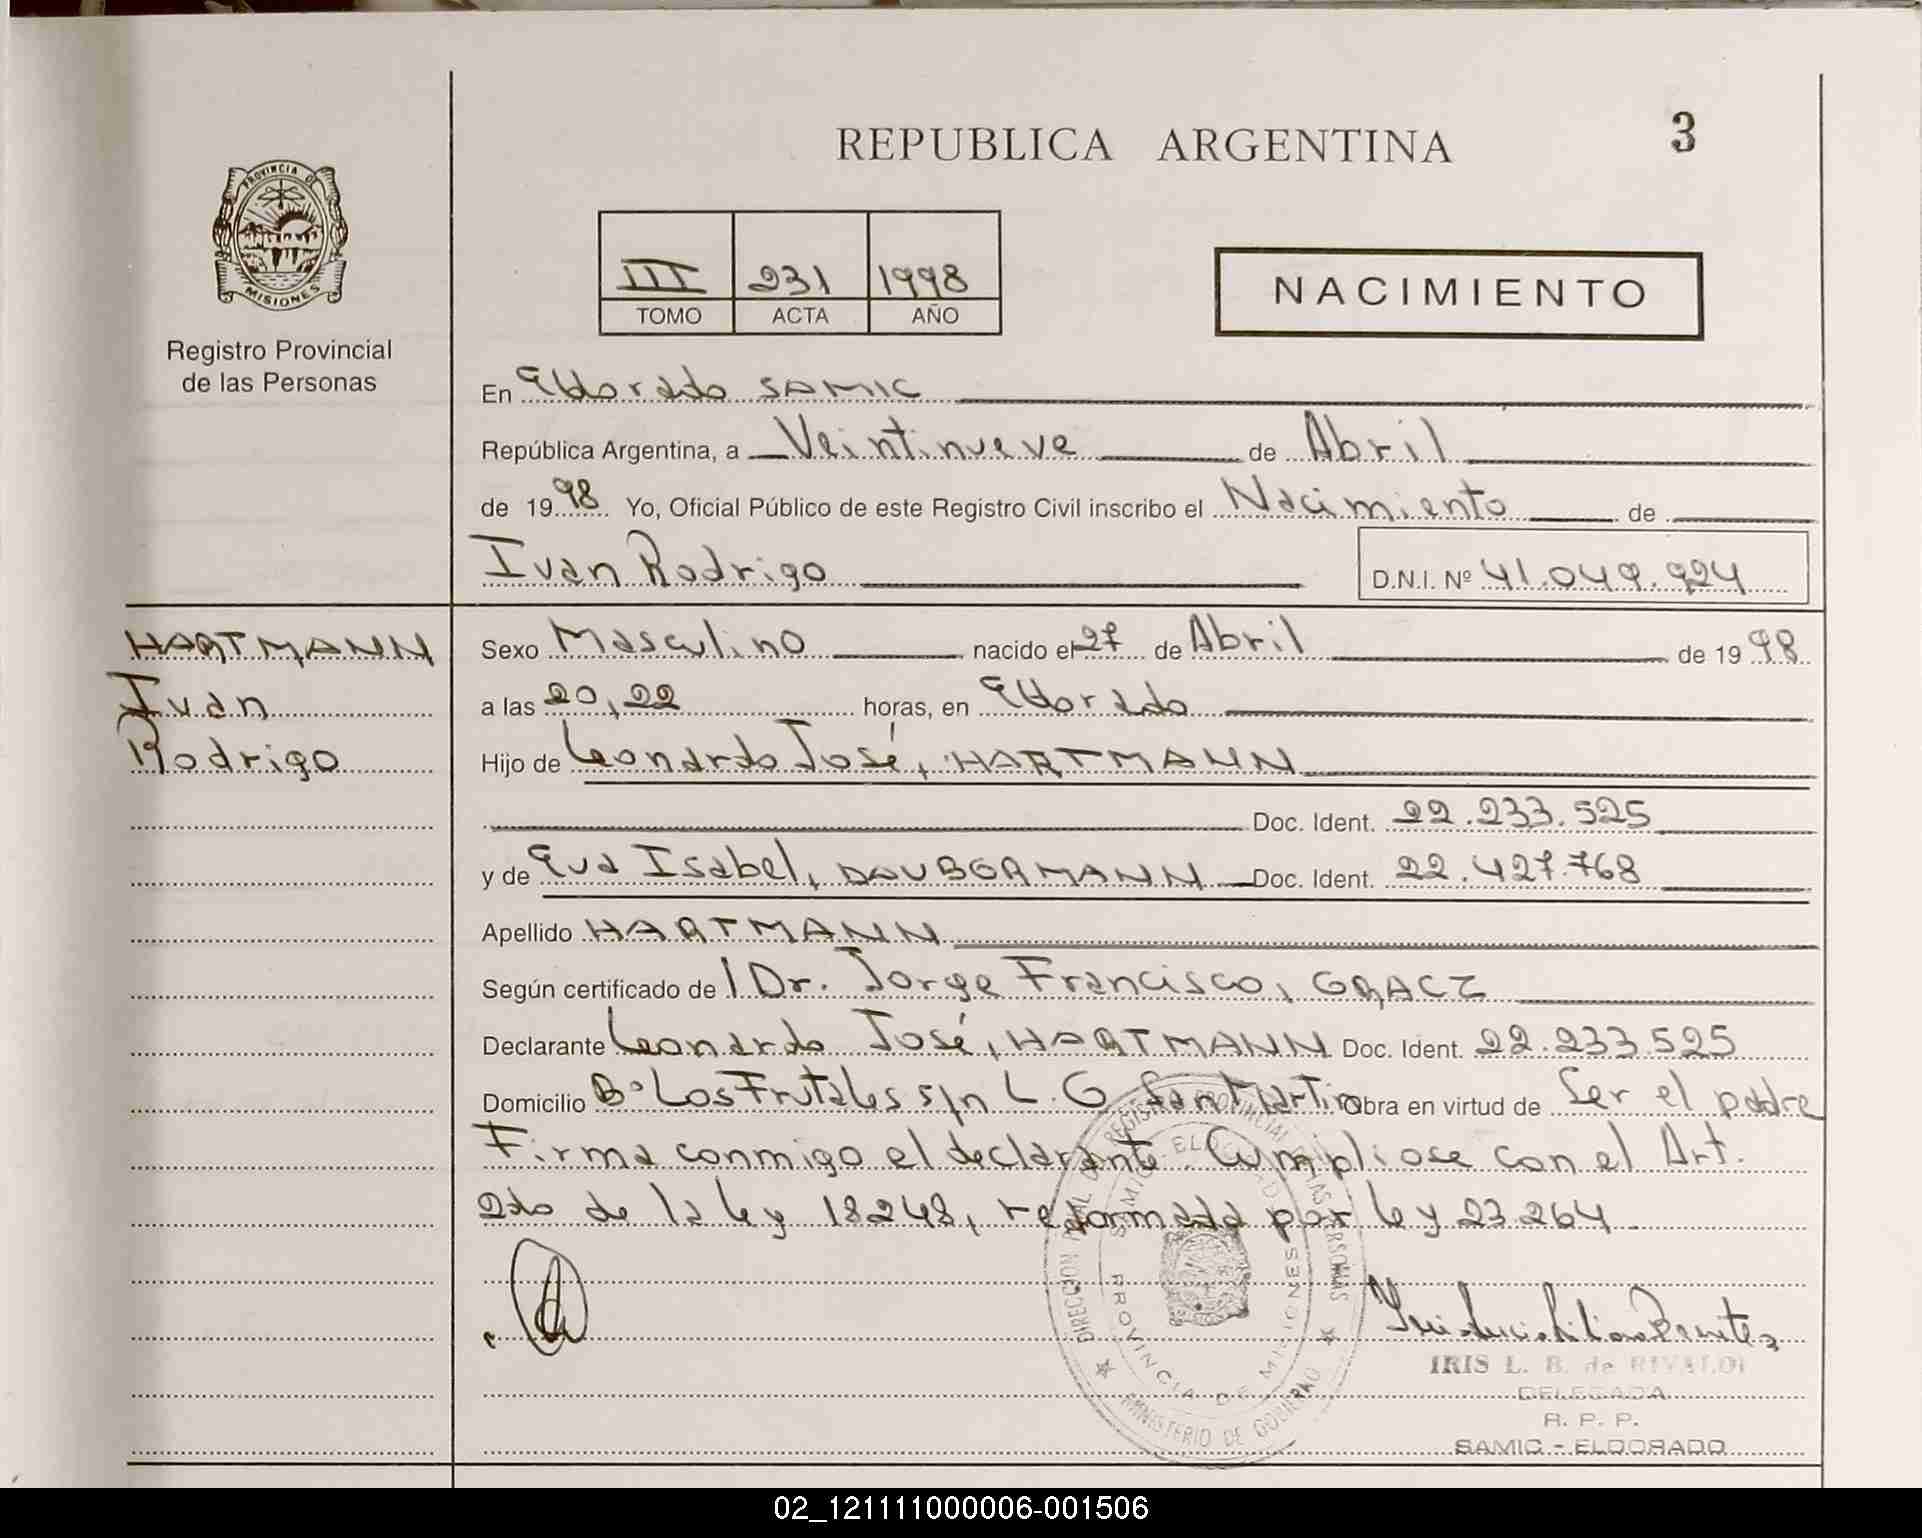 REPUBLICA ARGENTINA
3
PROVINCIA DE
MISIONES
Registro Provincial
de las Personas
III 231 1998
TOMO ACTA AÑO
NACIMIENTO
En Eldorado SAMIC
República Argentina, a Veintinueve de Abril
de 1998 Yo, Oficial Público de este Registro Civil inscribo el Nacimiento de
Ivan Rodrigo D.N.I. Nº 41.049.924
HARTMANN
Ivan
Rodrigo
Sexo Masculino nacido el 27 de Abril de 1998
a las 20,22 horas, en Eldorado
Hijo de Leonardo José, HARTMANN
Doc. Ident. 22.233.525
y de Eva Isabel, DAUBERMANN Doc. Ident. 22.427.768
Apellido HARTMANN
Según certificado de l Dr. Jorge Francisco, GRACZ
Declarante Leonardo José, HARTMANN Doc. Ident. 22.233.525
Domicilio Bº Los Frutales s/n L. G. San Martin Obra en virtud de Ser el padre
Firma conmigo el declarante. Cumpliose con el Art.
2do de la ley 18248, reformada por ley 23264
DIRECCION REGISTRO PROVINCIAL DE LAS PERSONAS
SAMIC ELDORADO
PROVINCIA DE MISIONES
MINISTERIO DE GOBIERNO
IRIS L. B. de RIVALDI
DELEGADA
R. P. P.
SAMIC - ELDORADO
02_121111000006-001506